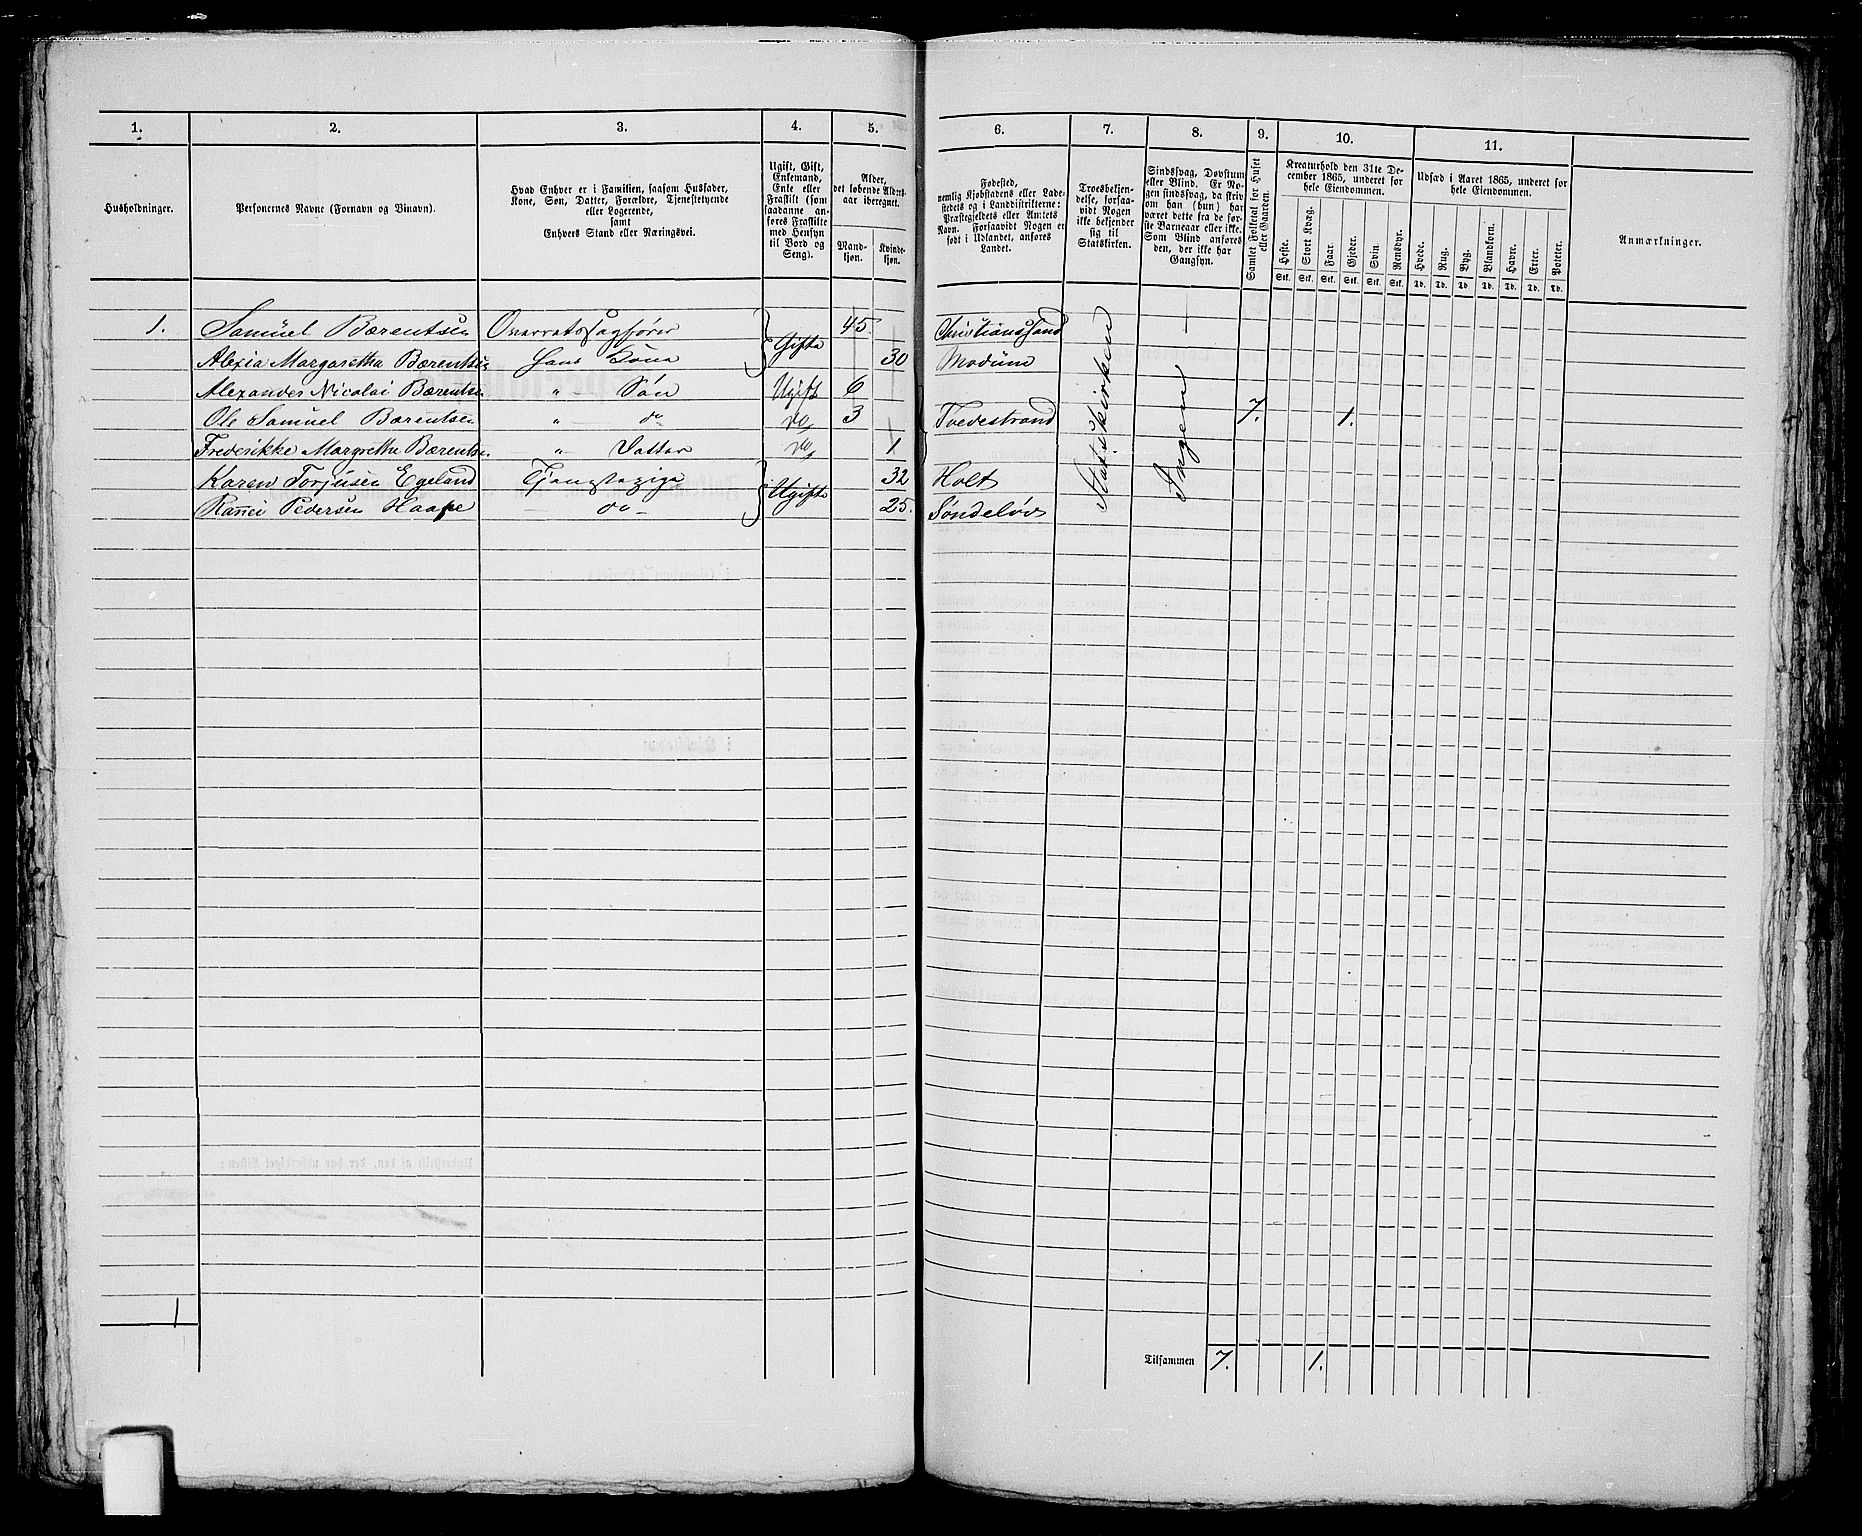 1. 2. 3. 4. 5. 6. 7. 8. 9. 10. 11.
Husholdninger.
Personernes Navne (Fornavn og Vinavn).
Hvad Enhver er i Familien, saasom Husfader,
Kone, Søn, Datter, Forældre, Tjenestetyende
eller Logerende,
samt
Enhvers Stand eller Næringsvei.
Ugift, Gift,
Enkemand,
Enke eller
Fraskilt (som
saadanne an-
føres Fraskilte
med Hensyn
til Bord og
Seng).
Alder,
det løbende Alders-
aar iberegnet.
Mand-
kjøn.
Kvinde-
kjøn.
Fødested,
nemlig Kjøbstadens eller Lade-
stedets og i Landdistrikterne:
Præstegjeldets eller Amtets
Navn. Forsaavidt Nogen er
født i Udlandet, anføres
Landet.
Troesbekjen-
delse, forsaa-
vidt Nogen
ikke bekjender
sig til
Statskirken.
Sindssvag, Døvstum
eller Blind. Er No-
gen sindssvag, da skriv
om han (hun) har
været dette fra de før-
ste Barneaar eller ikke.
Som Blind anføres
den, der ikke har
Gangsyn.
Samlet Folketal for Huset
eller Gaarden.
Kreaturhold den 31te De-
cember 1865, underet for
hele Eiendommen.
Heste. Stort Kvæg. Faar. Gjeder. Svin. Rensdyr.
Stk. Stk. Stk. Stk. Stk. Stk.
Udsæd i Aaret 1865, underet for
hele Eiendommen.
Hvede. Rug. Byg. Blandkorn. Havre. Erter. Poteter.
Td. Td. Td. Td. Td. Td. Td.
Anmærkninger.
1. Samuel Bærentsen Overretssagfører Gifte 45 Christianssand
Alexia Margaretha Bærentsen Hans Kone 30 Modum
Alexander Nicolai Bærentsen " Søn Ugift 6
Ole Samuel Bærentsen " do do 3 Tvedestrand 7. 1.
Frederikke Margrethe Bærentsen " Datter do 1
Karen Torjusen Egeland Tjenestepige Ugifte 32 Holt
Pedersen Haape do 25. Søndeløv
Statskirken
Ingen
1
Tilsammen 7. 1.